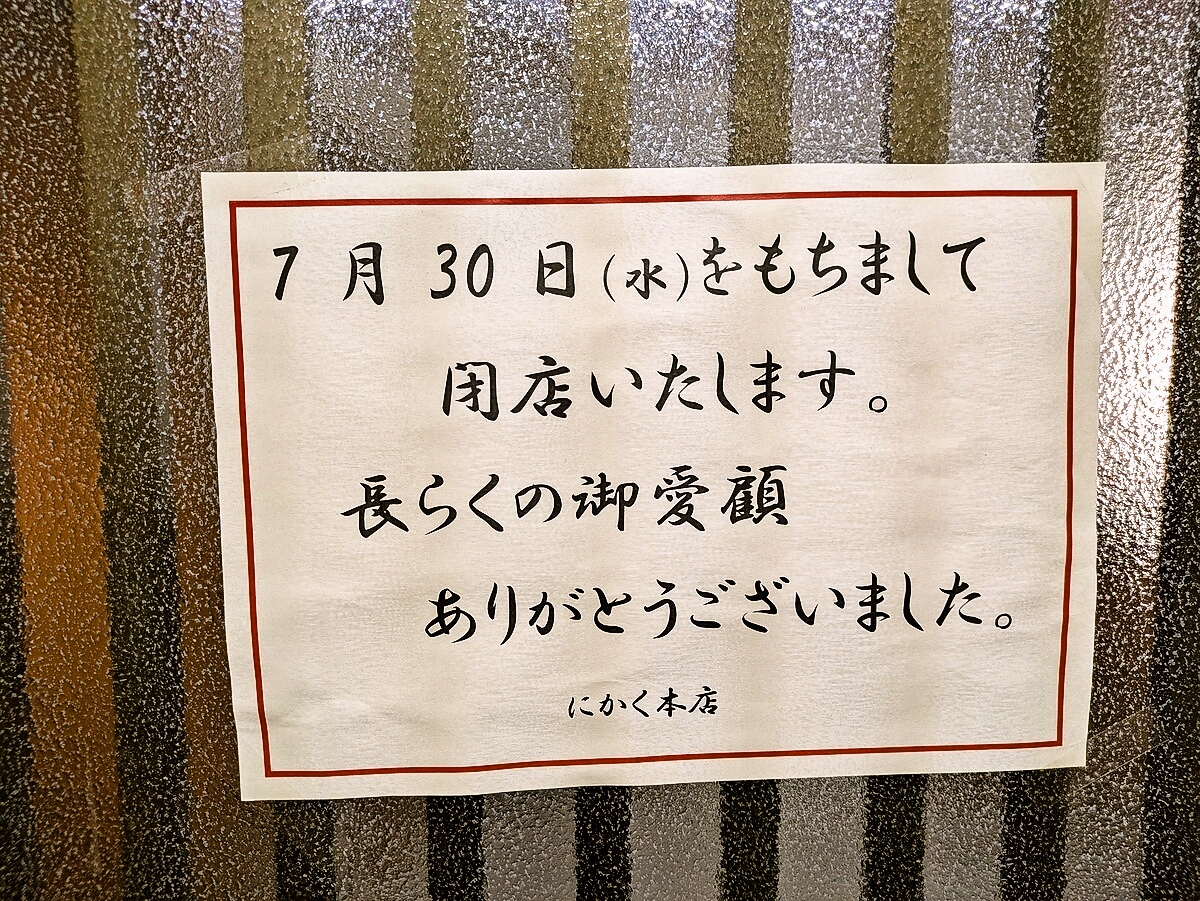 7月30日(水)をもちまして
閉店いたします。
長らくの御愛顧
ありがとうございました。
にかく本店